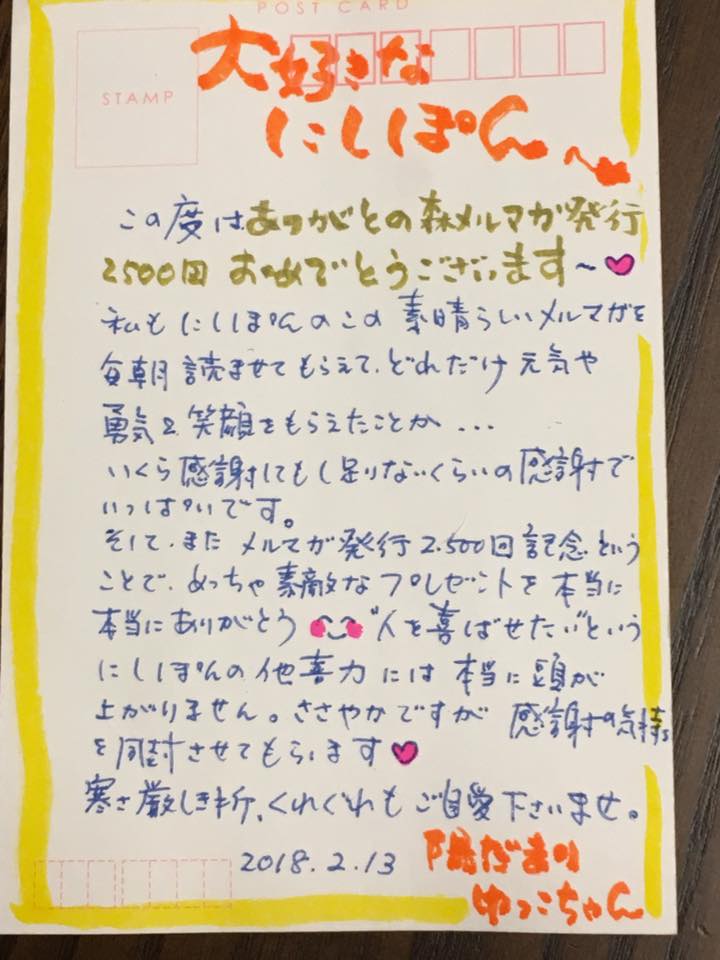 POST CARD
STAMP
大好きな
にしぽん〜
この度はありがとの森メルマガ発行
2500回 おめでとうございます〜
私もにしぽんのこの素晴らしいメルマガを
毎朝読ませてもらえて、どれだけ元気や
勇気と笑顔をもらえたことか...
いくら感謝してもし足りないくらいの感謝で
いっぱいです。
そして、またメルマガ発行2.500回記念という
ことで、めっちゃ素敵なプレゼントを本当に
本当にありがとう "人を喜ばせたい"という
にしぽんの他喜力には本当に頭が
上がりません。ささやかですが感謝の気持
を同封させてもらいます
寒さ厳しき折、くれぐれもご自愛下さいませ。
2018.2.13 陽だまり
ゆっこちゃん